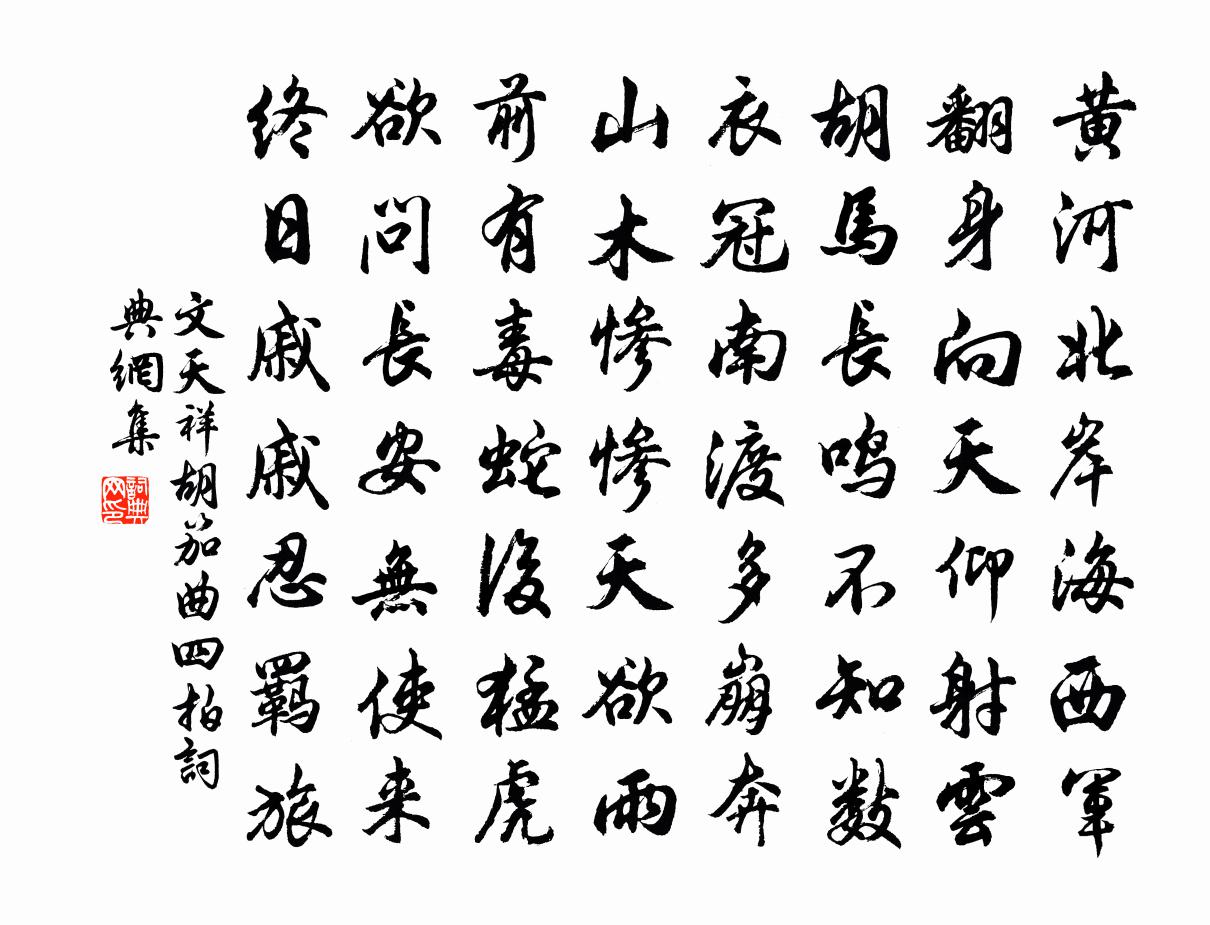 黄河北岸海西軍
翻身向天仰射雲
胡馬長鳴不知數
衣冠南渡多崩奔
山木惨惨天欲雨
前有毒蛇後猛虎
欲問長安無使来
終日戚戚忍羈旅
文天祥胡笳曲四拍詞
典網集
詞典
网印